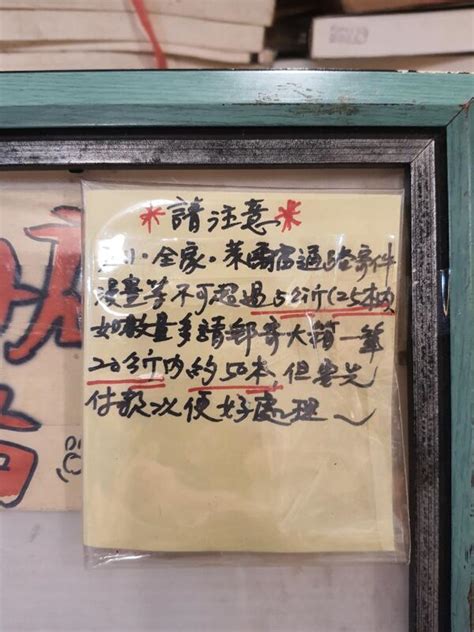 *請注意*
·全家·萊爾富通路寄件
量等不可超過5公斤(25本內
如數量多請郵寄大箱一筆
20公斤內約50本,但要先
付款以便好處理~